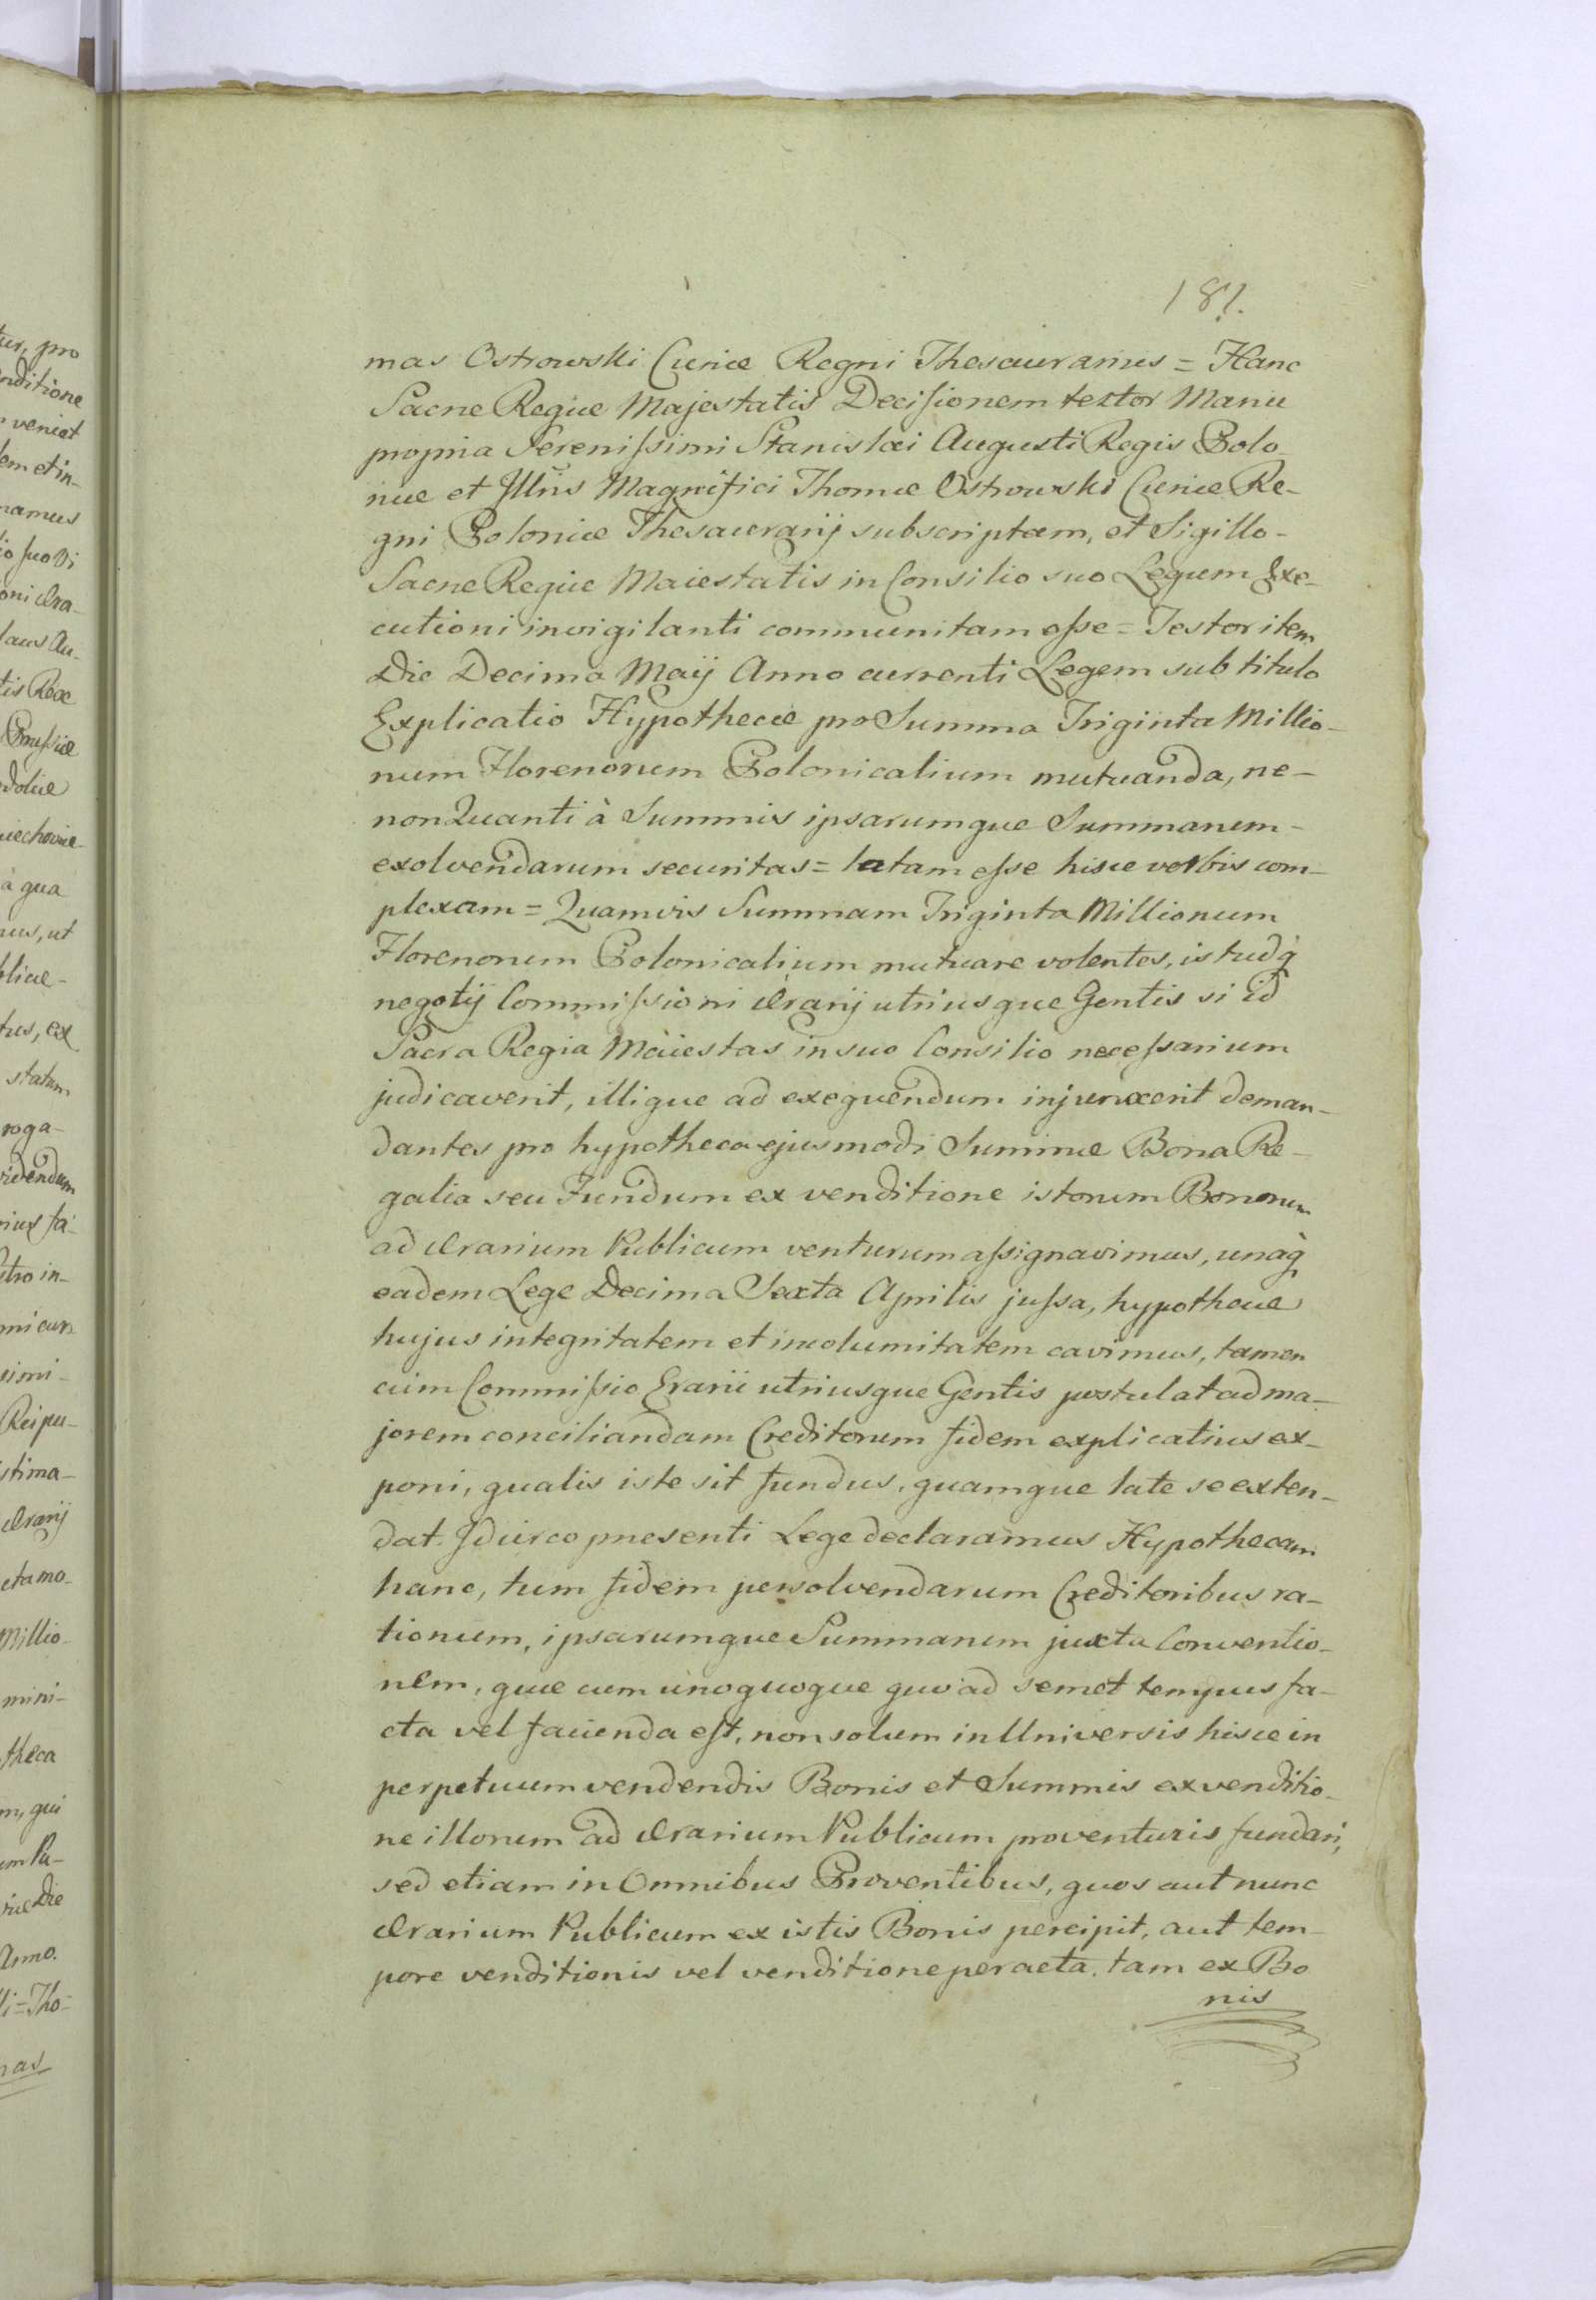 181.
mas Ostrowski Curiæ Regni Thesaurarius = Hanc
Sacræ Regiæ Majestatis Decisionem testor Manu
propria Serenissimi Stanislai Augusti Regis Polo-
niæ et Illris Magnifici Thomæ Ostrowski Curiæ Re-
gni Poloniæ Thesaurarij subscriptam, et Sigillo-
Sacræ Regiæ Maiestatis in Consilio suo Legum Exe-
cutioni invigilanti communitam esse = Testor item
Die Decima Maij Anno currenti Legem sub titulo
Explicatio Hypothecæ pro Summa Triginta Millio-
num Florenorum Polonicalium mutuanda, ne-
non Quanti à Summis ipsarumque Summarum-
exolvendarum securitas = latam esse hisce verbis com-
plexam = Quamvis Summam Triginta Millionum
Florenorum Polonicalium mutuare volentes, istudq
negotij Commissioni Ærarij utriusque Gentis si id
Sacra Regia Maiestas in suo Consilio necessarium
judicaverit, illique ad exequendum injunxerit deman-
dantes pro hypotheca ejusmodi Summæ Bona Re-
galia seu Fundum ex venditione istorum Bonorum
ad Ærarium Publicum venturum assignavimus, unaq
eadem Lege Decima Sexta Aprilis jussa, hypothecæ
hujus integritatem et incolumitatem cavimus, tamen
cùm Commissio Erarii utriusque Gentis postulat ad ma-
jorem conciliandam Creditorum fidem explicatius ex-
poni, qualis iste sit fundus, quamque late se exten-
dat. Idcirco præsenti Lege declaramus Hypothecam
hanc, tum fidem persolvendarum Creditoribus ra-
tionum, ipsarumque Summarum juxta Conventio-
nem, quæ cum unoquoque quoad semet tempus fa-
cta vel facienda est, non solum in Universis hisce in
perpetuum vendendis Bonis et Summis ex venditio-
ne illorum ad Ærarium Publicum proventuris fundari,
sed etiam in Omnibus Proventibus, quos aut nunc
Ærarium Publicum ex istis Bonis percipit, aut tem-
pore venditionis vel venditione peracta, tam ex Bo
nis